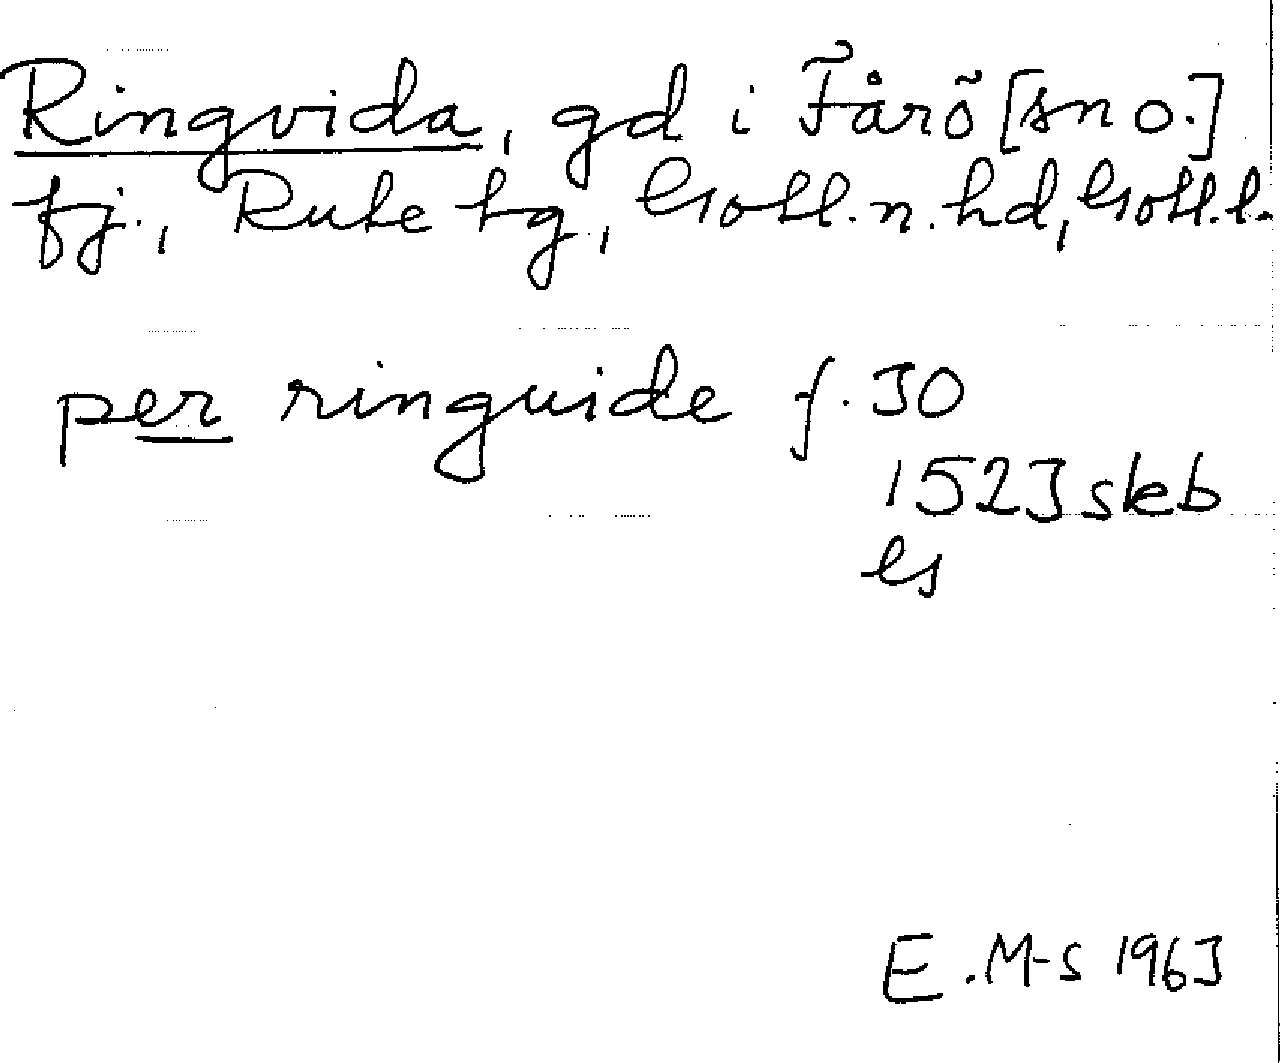 Ringvida, gd i Fårö [sn o.]
fj., Rute tg, Gotl. n. hd, Gotl. l.
per ringuide f. 30
1523 skb
es
E. M-s 1963